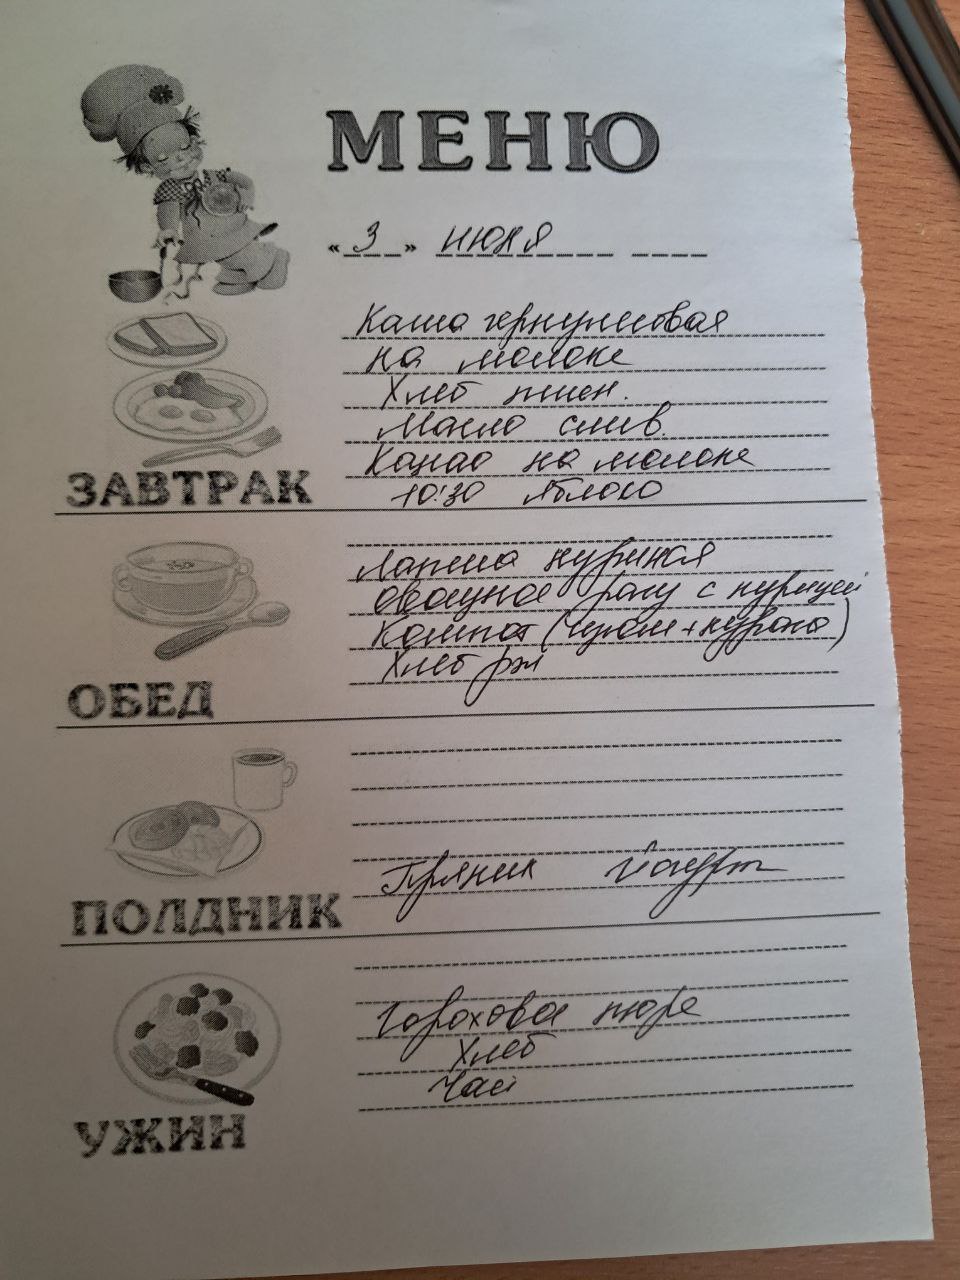 МЕНЮ
« 3 » июля
Каша геркулесовая
на молоке
Хлеб пшен.
Масло слив.
Какао на молоке
ЗАВТРАК
10:30 яблоко
Лапша куриная
овощное рагу с курицей
Компот (изюм+курага)
Хлеб рж
ОБЕД
Пряник йогурт
ПОЛДНИК
Гороховое пюре
Хлеб
Чай
УЖИН